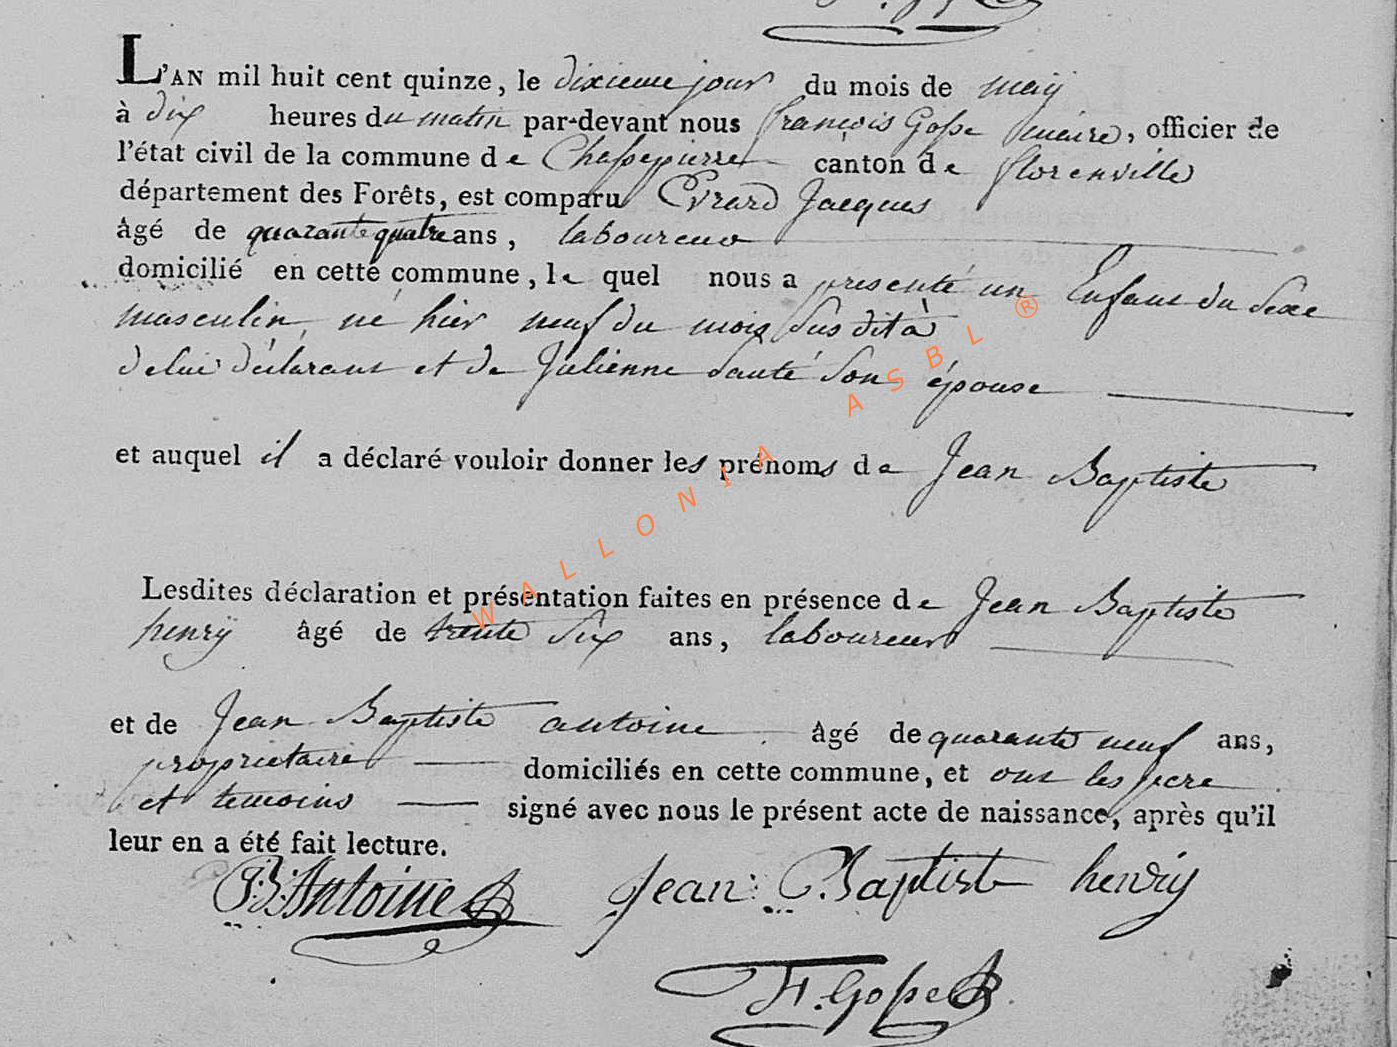 L'AN mil huit cent quinze, le dixieme jour du mois de maÿ
à dix heures du matin par-devant nous francois Gosse maire, officier de
l'état civil de la commune de Chassepierre canton de florenville
département des Forêts, est comparu Evrard Jacques
âgé de quarante quatre ans, laboureur
domicilié en cette commune, le quel nous a presenté un Enfant du Sexe
masculin, né hier neuf du mois Sus dit à
de lui déclarant et de Julienne Santé Son épouse
et auquel il a déclaré vouloir donner les prénoms de Jean Baptiste
Lesdites déclaration et présentation faites en présence de Jean Baptiste
henrÿ âgé de trente Six ans, laboureur
et de Jean Baptiste antoine âgé de quarante neuf ans,
proprietaire domiciliés en cette commune, et ont les pere
et temoins signé avec nous le présent acte de naissance, après qu'il
leur en a été fait lecture.
Antoine Jean Baptiste henrÿ
F. Gosse
WALLONIA ASBL ®